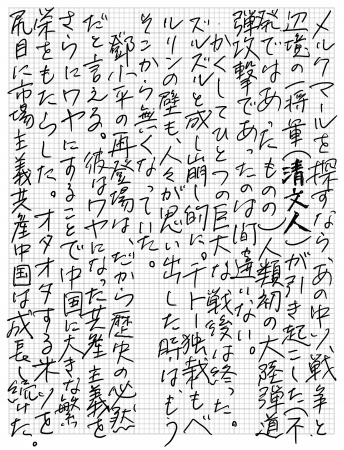 メルクマールを探すなら、あの中ソ戦争と
辺境の一将軍(清文人)が引き起こした(不
発ではあったものの)人類初の大陸弾道
弾攻撃であったのは間違いない。
かくしてひとつの巨大な戦後は終った。
ズルズルと成し崩し的に。チトー独裁もベ
ルリンの壁も、人々が思い出した時はもう
そこから無くなっていた。
鄧小平の再登場は、だから歴史の必然
だと言える。彼はワヤになった共産主義を
さらにワヤにすることで中国に大きな繁
栄をもたらした。オタオタする米ソを
尻目に市場主義共産中国は成長し続けた。